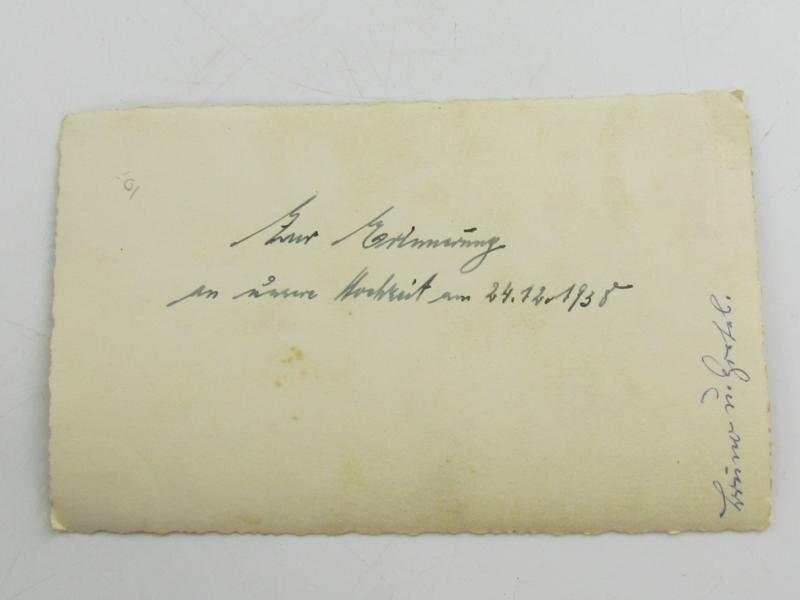 Zur Erinnerung
an unsere Hochzeit am 24.12.1938